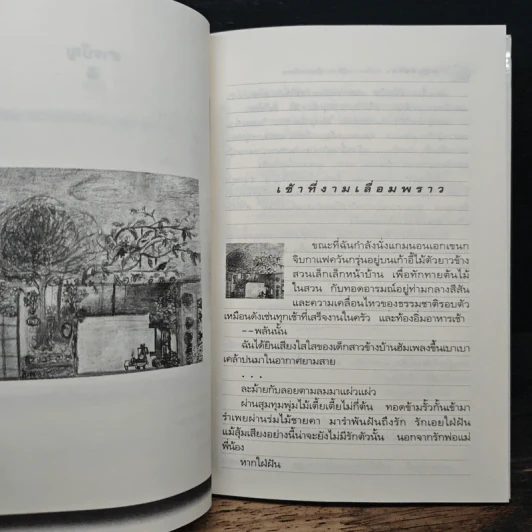 เช้าที่งามเลื่อมพราว
ขณะที่ฉันกำลังนั่งแกมนอนเอกเขนก
จิบกาแฟควันกรุ่นอยู่บนเก้าอี้ไม้ตัวยาวข้าง
สวนเล็กเล็กหน้าบ้าน เพื่อทักทายต้นไม้
ในสวน กับทอดอารมณ์อยู่ท่ามกลางสีสัน
และความเคลื่อนไหวของธรรมชาติรอบตัว
เหมือนดังเช่นทุกเช้าที่เสร็จงานในครัว และท้องอิ่มอาหารเช้า
--พลันนั้น
ฉันได้ยินเสียงใสใสของเด็กสาวข้างบ้านฮัมเพลงขึ้นเบาเบา
เคล้าปนมาในอากาศยามสาย
...
ละม้ายกับลอยตามลมมาแผ่วแผ่ว
ผ่านสุมทุมพุ่มไม้เตี้ยเตี้ยไม่กี่ต้น ทอดข้ามรั้วกั้นเข้ามา
รำเพยผ่านร่มไม้ชายคา มารำพันฝันถึงรัก รักเอยใฝ่ฝัน
แม้สุ้มเสียงอย่างนี้น่าจะยังไม่มีรักตัวนั้น นอกจากรักพ่อแม่
พี่น้อง
หากใฝ่ฝัน